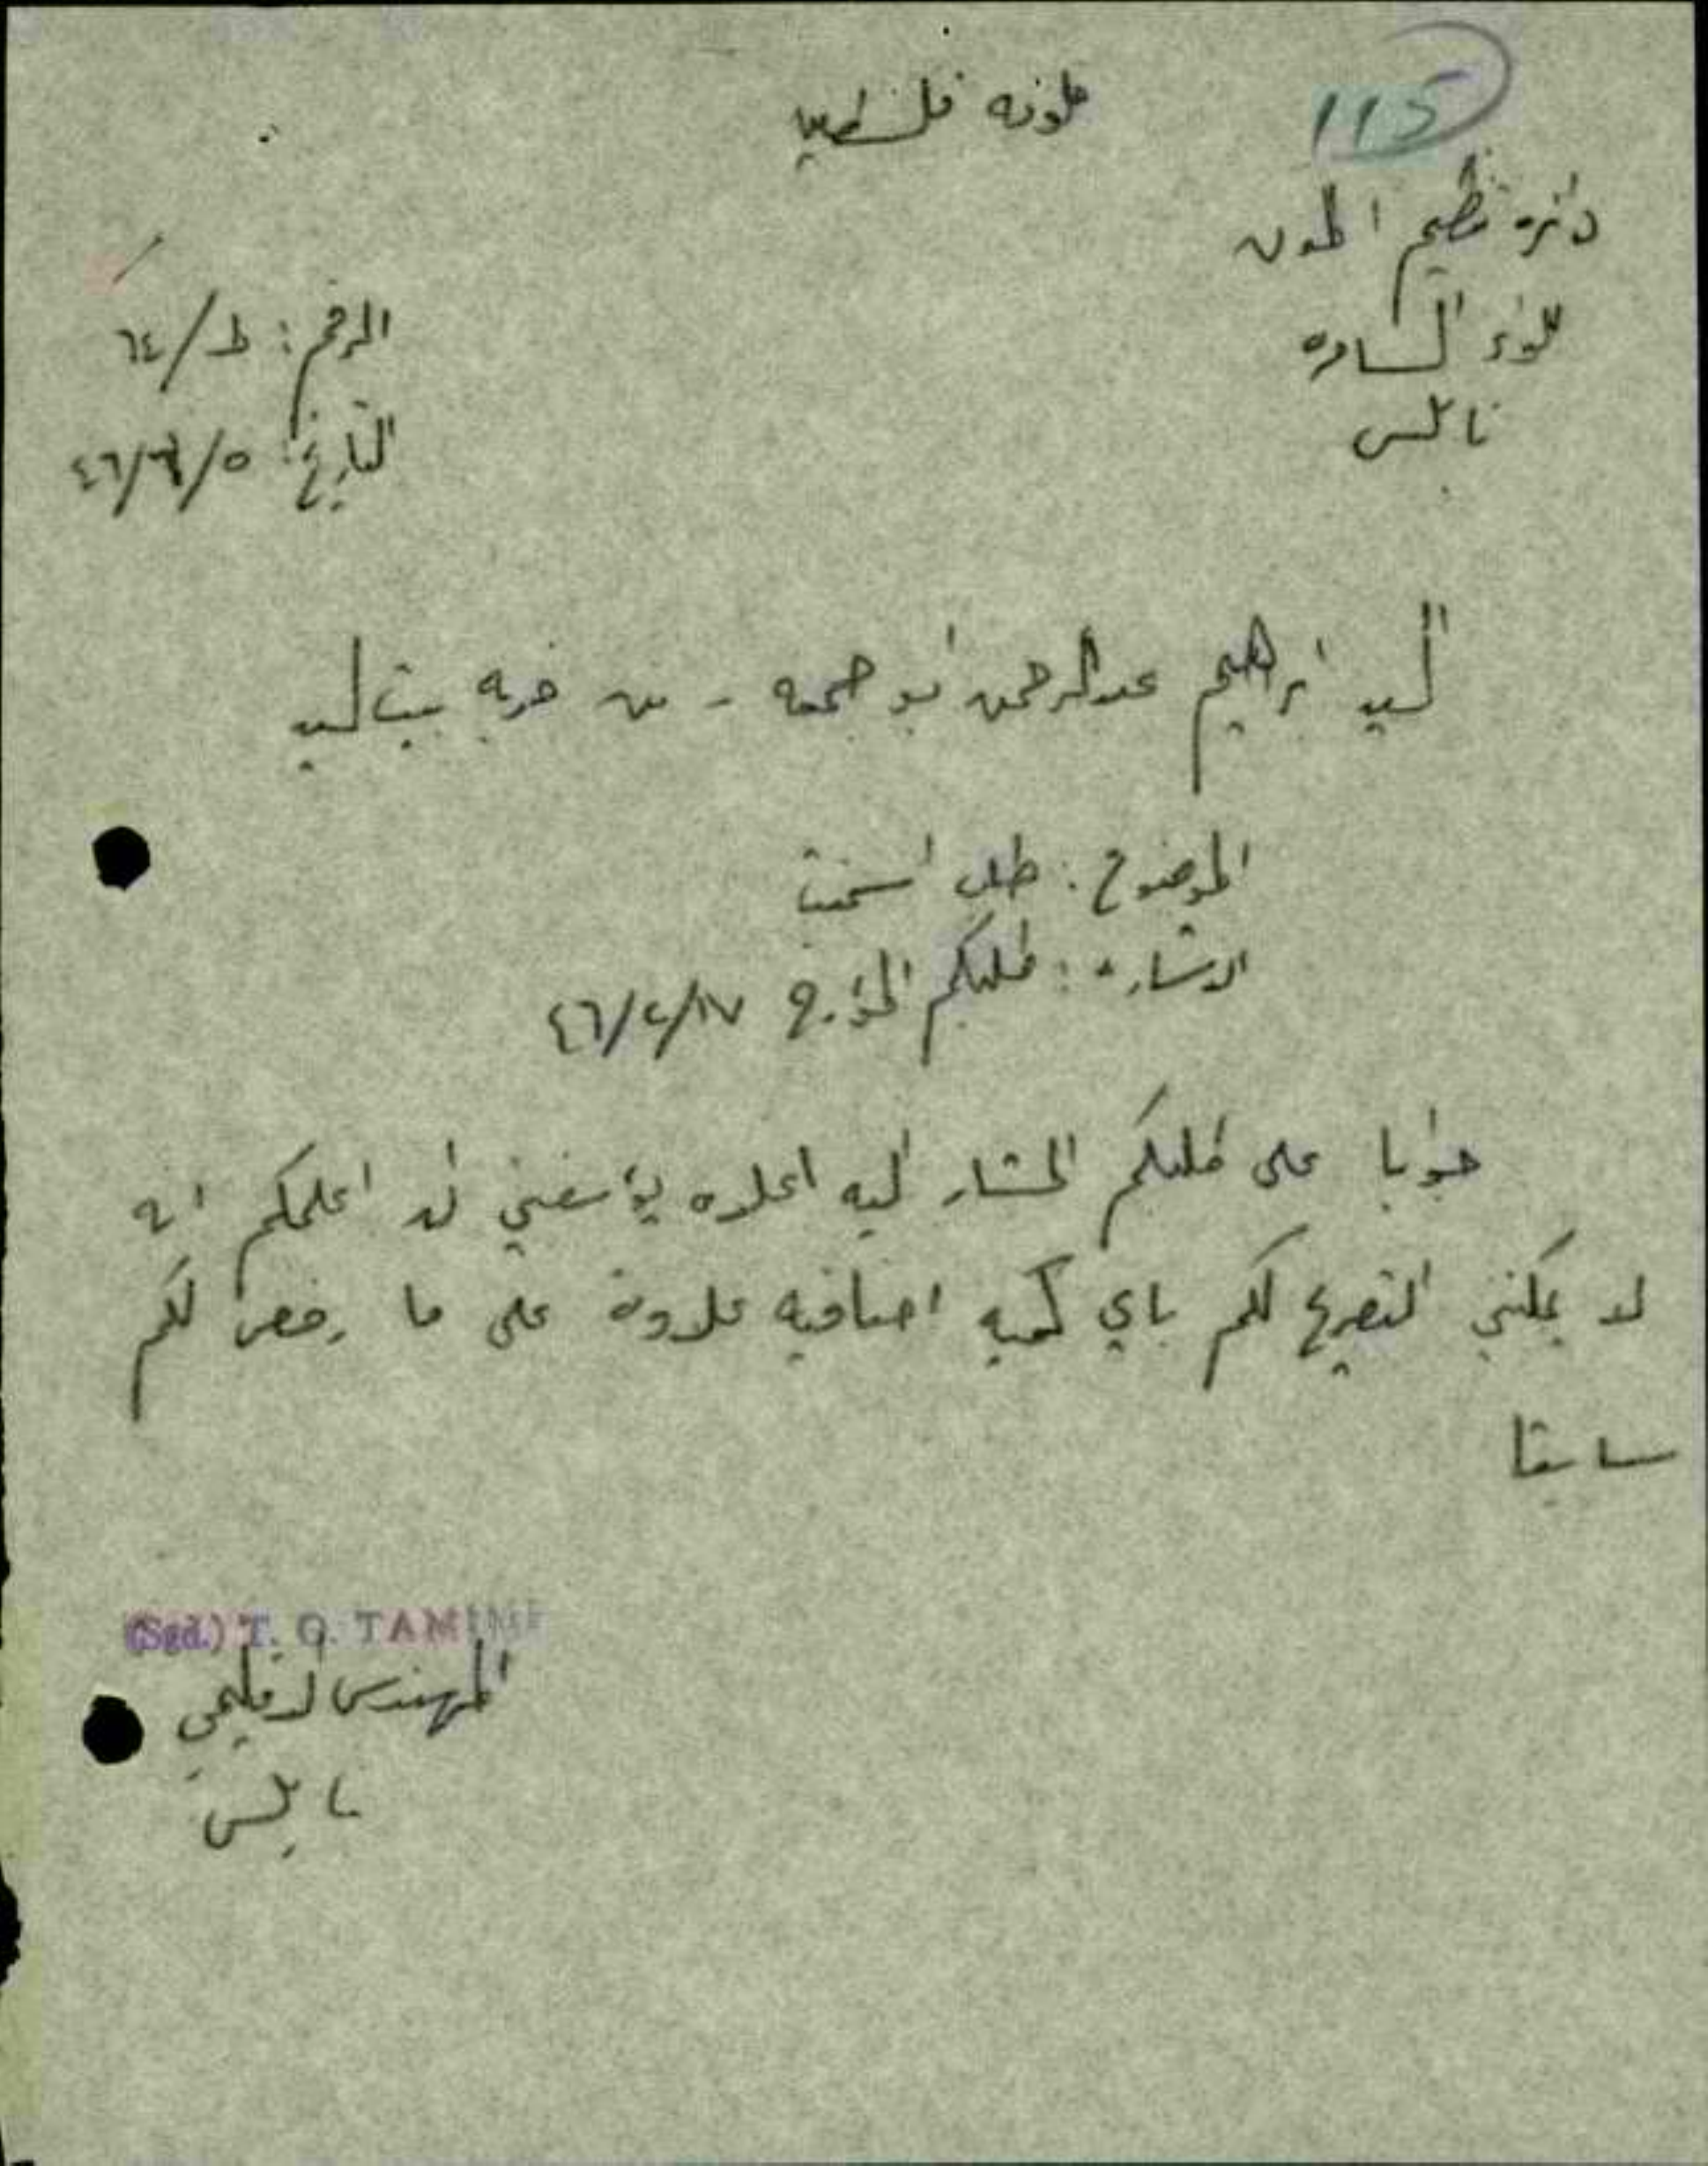 115
حكومة فلسطين
دائرة تنظيم المدن
للواء السامره
نابلس
الرقم: ط/٦٤
التاريخ: ٤٦/٦/٥
السيد ابراهيم عبدالرحمن ابو جمعه - من خربه بيت ليد
الموضوع: طلب اسمنت
الاشارة: طلبكم المؤرخ ٤٦/٤/١٧
جوابا على طلبكم المشار اليه اعلاه يؤسفني ان اعلمكم انه
لا يمكنني التصريح لكم باي كميه اضافيه علاوة على ما رخص لكم
سابقا
(Sgd.) T. O. TAMIMI
المهندس الاقليمي
نابلس